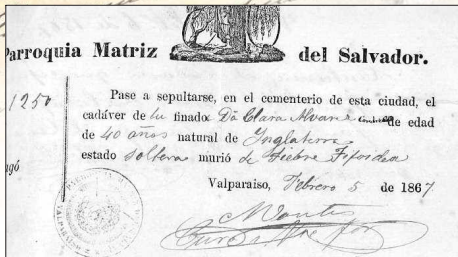 Parroquia Matriz del Salvador.
1250
Pase a sepultarse, en el cementerio de esta ciudad, el
cadáver de la finado Dª Clara Alvarez de edad
de 40 años natural de Inglaterra
estado soltera murió de Fiebre Tifoidea
gó
Valparaiso, Febrero 5 de 1867